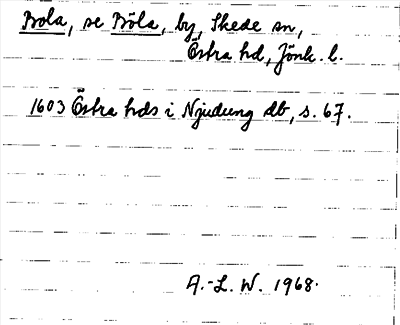 Bola, se Böla, by, Skede sn,
Östra hd, Jönk. l.
1603 Östra hds i Njudung db, s. 67.
A.-L. W. 1968.